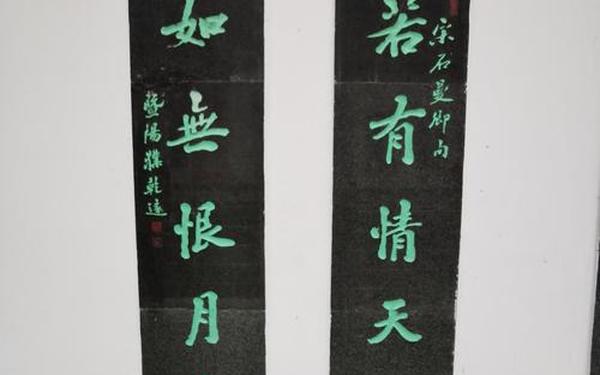 宋石曼卿句
若有情天
如無恨月
暨陽